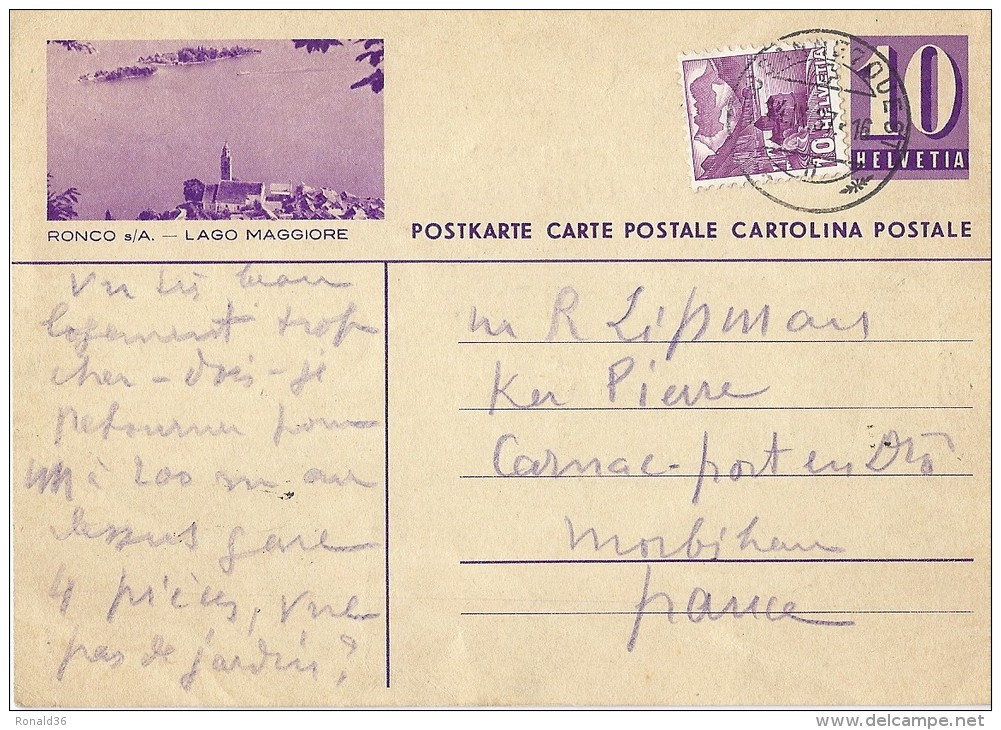 10
HELVETIA
10 HELVETIA
RONCO s/A. — LAGO MAGGIORE
POSTKARTE CARTE POSTALE CARTOLINA POSTALE
Vu très beau
logement trop
cher - dois-je
retourner pour
à 200 m au
dessus gare
4 pièces, vue
pas de jardin?
m R Lipmans
Ker Pierre
Carnac-port en Drô
Morbihan
france
Ronald36
www.delcampe.net